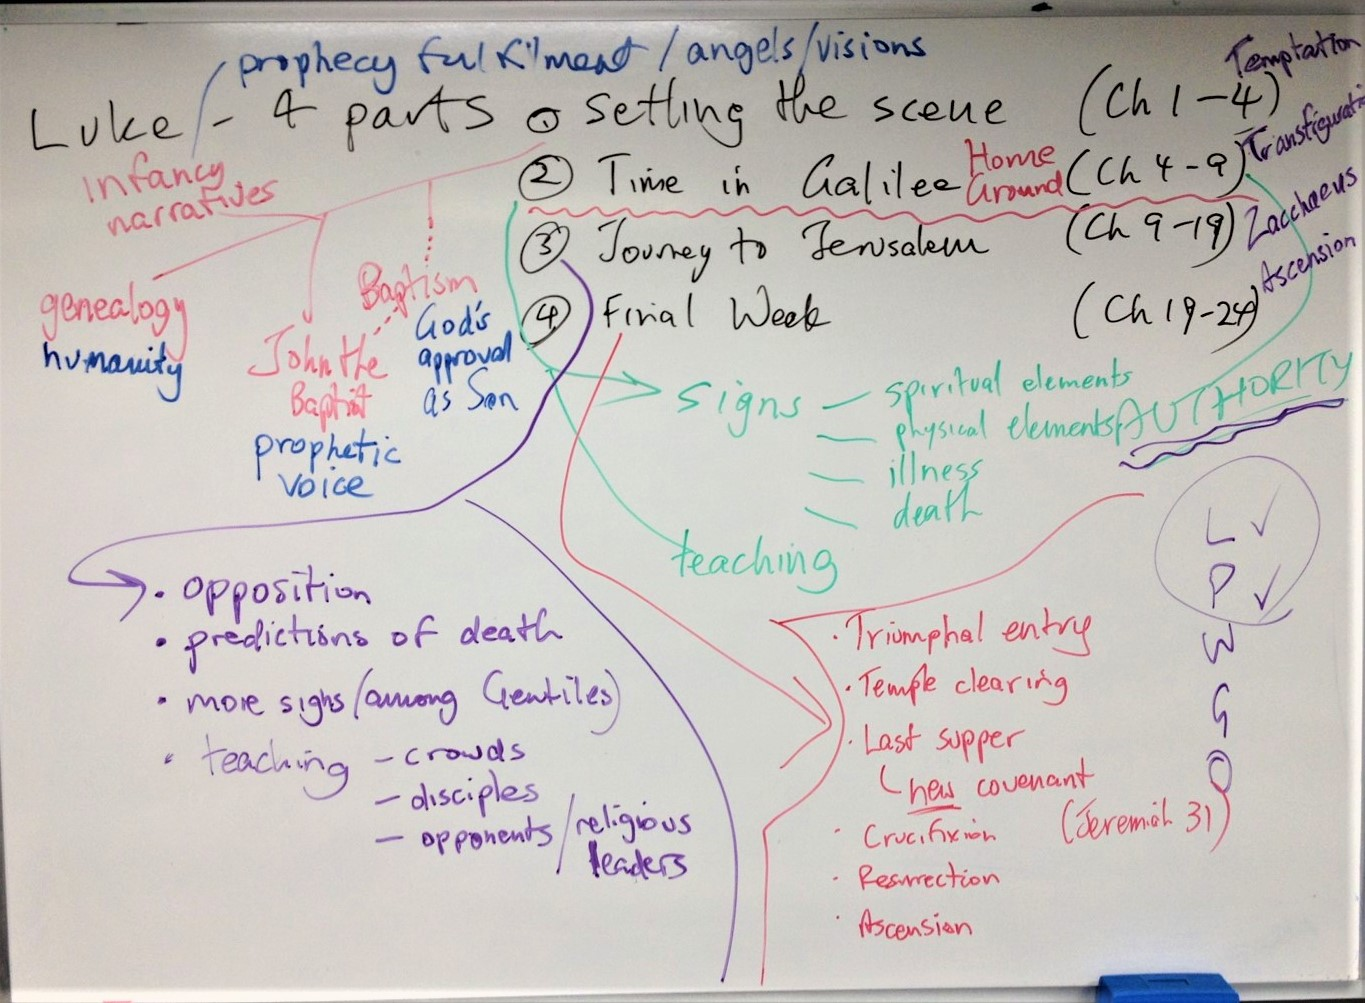 prophecy fulfilment / angels/visions
Luke - 4 parts ① setting the scene (Ch 1-4) Temptation
② Time in Galilee Home Ground (Ch 4-9) Transfigurati
③ Journey to Jerusalem (Ch 9-19) Zacchaeus
④ Final Week (Ch 19-24) Ascension
infancy
narratives
genealogy
humanity
John the
Baptist
prophetic
voice
Baptism
God's
approval
as Son
signs - spiritual elements
- physical elements
- illness
- death
AUTHORITY
teaching
• opposition
• predictions of death
• more signs (among Gentiles)
• teaching - crowds
- disciples
- opponents / religious
leaders
• Triumphal entry
• Temple clearing
• Last supper
new covenant
(Jeremiah 31)
• Crucifixion
• Resurrection
• Ascension
L ✓
P ✓
W
G
O